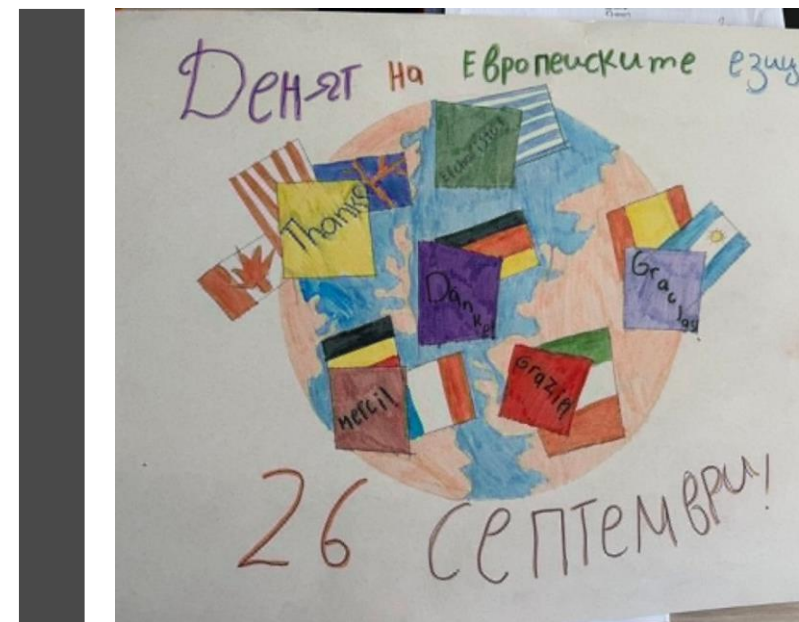 Денят на Европеиските езиц
Thanks!
Danke!
Merci!
Grazie!
26 септември!